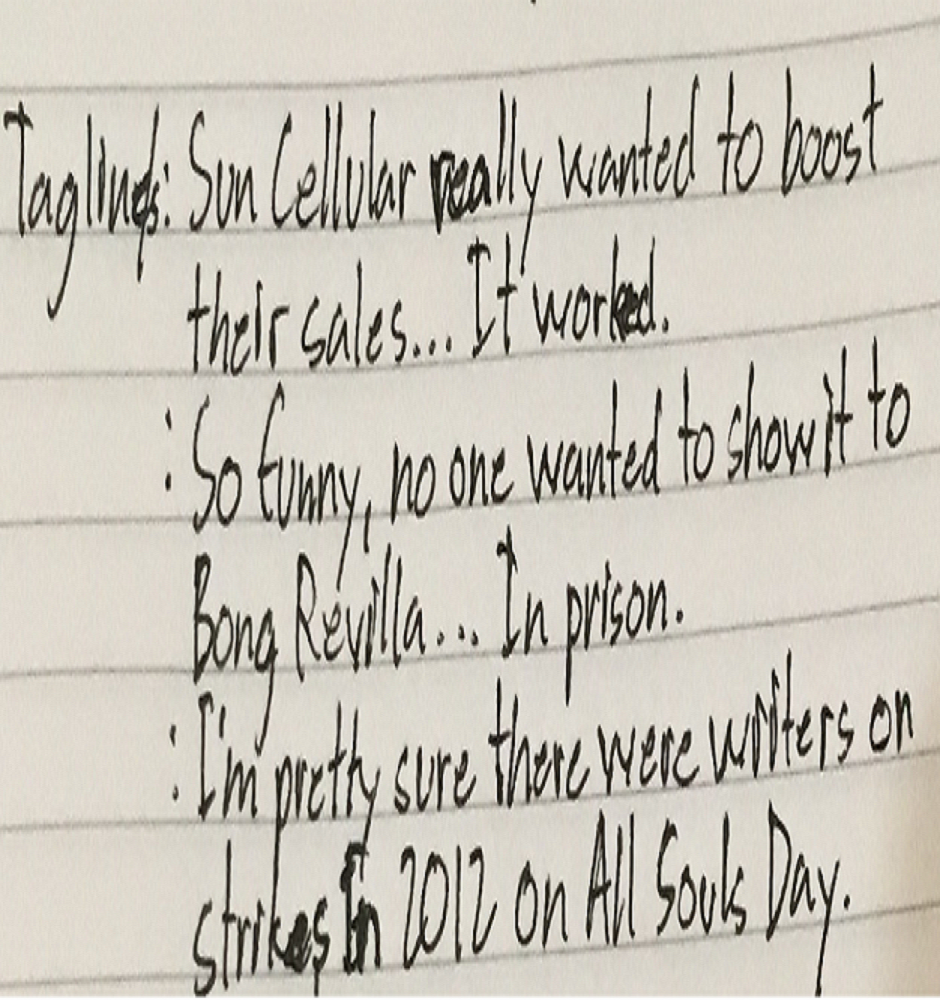 Taglines: Sun Cellular really wanted to boost
their sales... It worked.
: So funny, no one wanted to show it to
Bong Revilla... In prison.
: I'm pretty sure there were writers on
strikes in 2012 on All Souls Day.